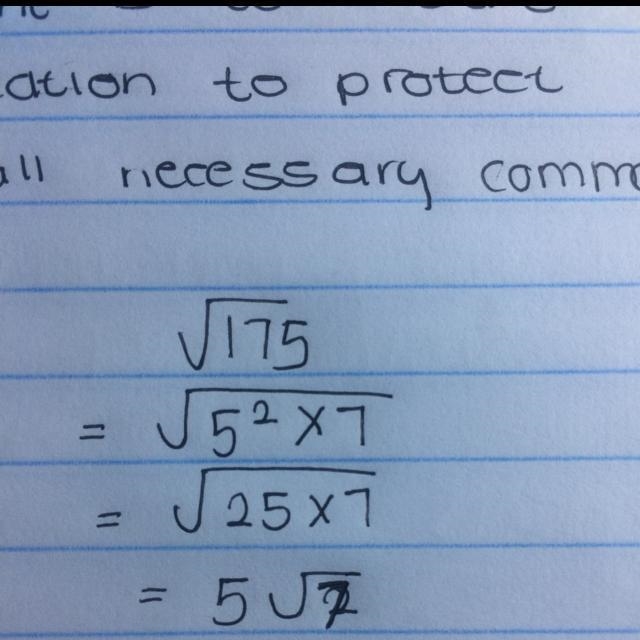 ation to protect
all necessary comm
√175
= √5² × 7
= √25 × 7
= 5√7